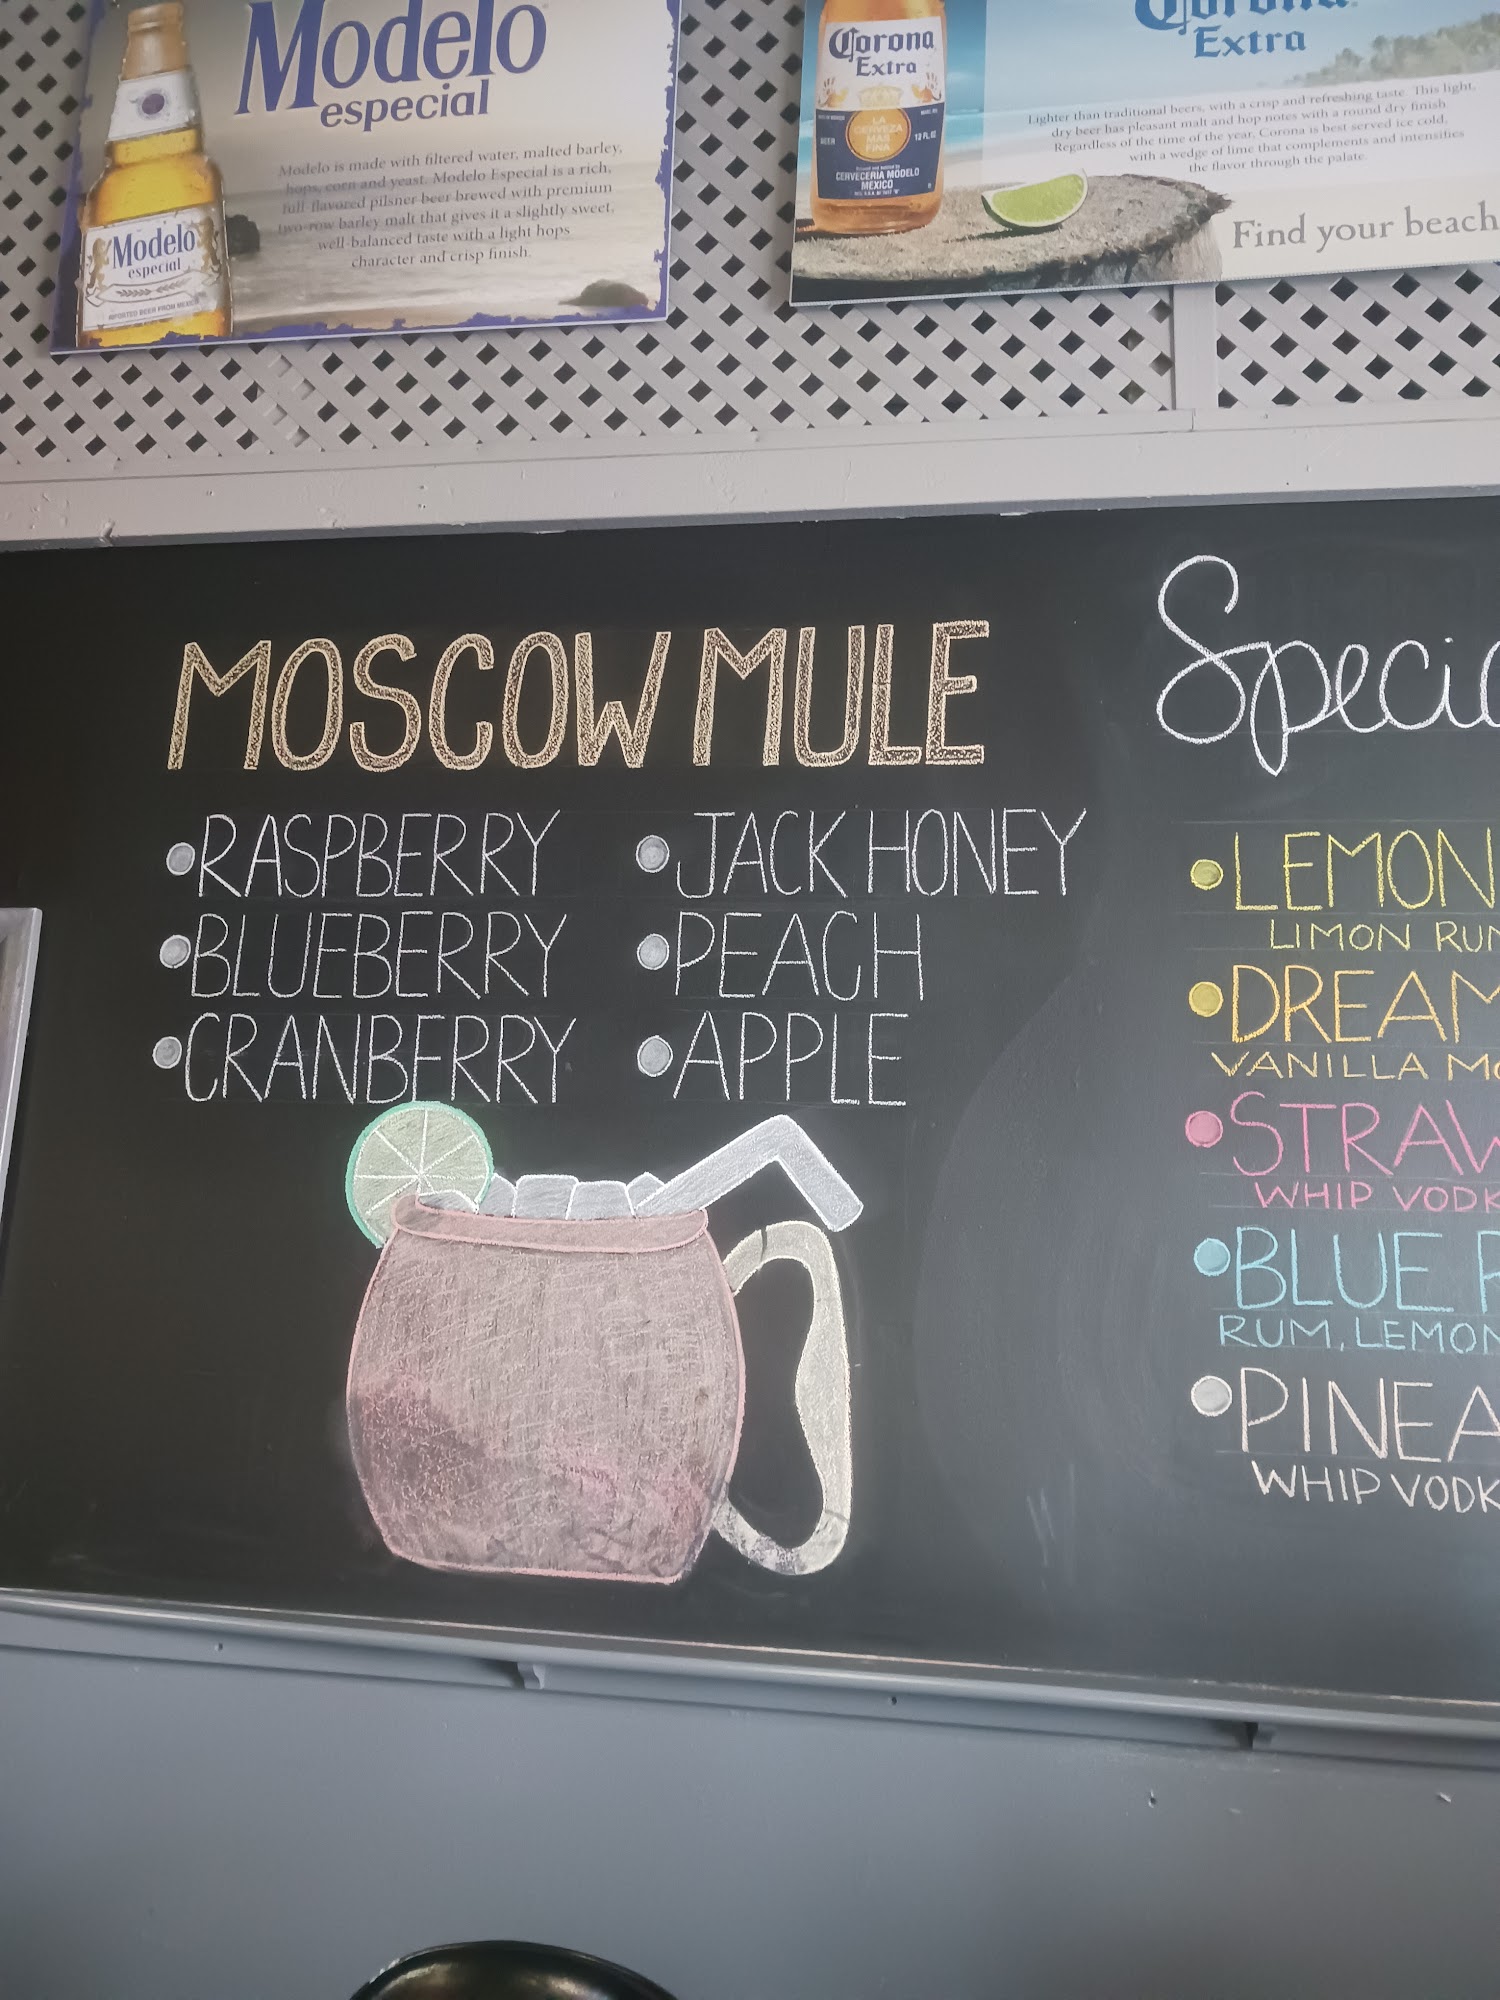 Modelo
especial
Modelo is made with filtered water, malted barley,
hops, corn and yeast. Modelo Especial is a rich,
full flavored pilsner beer brewed with premium
two-row barley malt that gives it a slightly sweet,
well-balanced taste with a light hops
character and crisp finish.
Modelo
especial
IMPORTED BEER FROM MEXICO
Corona
Extra
LA
CERVEZA
MAS
FINA
BEER
12 FL OZ
CERVECERIA MODELO
MEXICO
Corona
Extra
Lighter than traditional beers, with a crisp and refreshing taste. This light,
dry beer has pleasant malt and hop notes with a round dry finish
Regardless of the time of the year, Corona is best served ice cold,
with a wedge of lime that complements and intensifies
the flavor through the palate.
Find your beach
MOSCOW MULE
RASPBERRY
BLUEBERRY
CRANBERRY
JACK HONEY
PEACH
APPLE
Specia
LEMON
LIMON RUM
DREAM
VANILLA
STRAW
WHIP VODK
BLUE
RUM, LEMON
PINEA
WHIP VODK